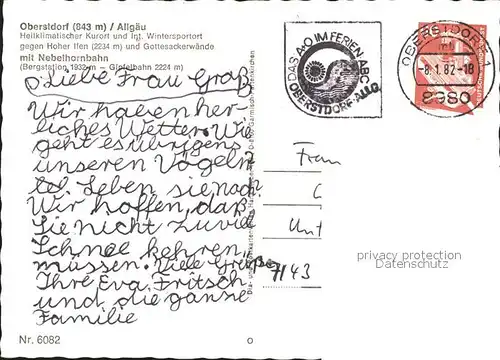 Oberstdorf (843 m) / Allgäu
Heilklimatischer Kurort und Int. Wintersportort
gegen Hoher Ifen (2234 m) und Gottesackerwände
mit Nebelhornbahn
(Bergstation 1932 m – Gipfelbahn 2224 m)
Liebe Frau Groß
Wir haben her-
liches Wetter. Wie
geht es übrigens
unseren Vögeln
Leben sie noch.
Wir hoffen, daß
Sie nicht zuviel
Schnee kehren
müssen. Viele Grüße
Ihre Eva Fritsch
und die ganse
Familie
Nr. 6082
DAS A+O IM FERIEN-ABC
OBERSTDORF-Allg
OBERSTDORF 1
-8.1.82-18
8980
Frau
Unt
7143
privacy protection
Datenschutz